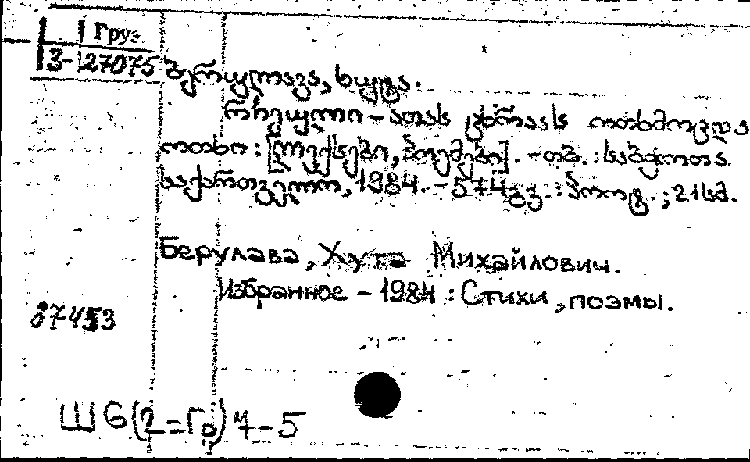 Груз.
3-27075
ბერულავა, ხუტა.
რჩეული – ათას ცხრაას ოთხმოცდა
ოთხი: [ლექსები, პოემები]. – თბ.: საბჭოთა
საქართველო, 1984. – 574გვ.: პორტ.; 21სმ.
Берулава, Хута Михайлович.
Избранное – 1984: Стихи, поэмы.
87-453
Ш6(2=Гр)7-5